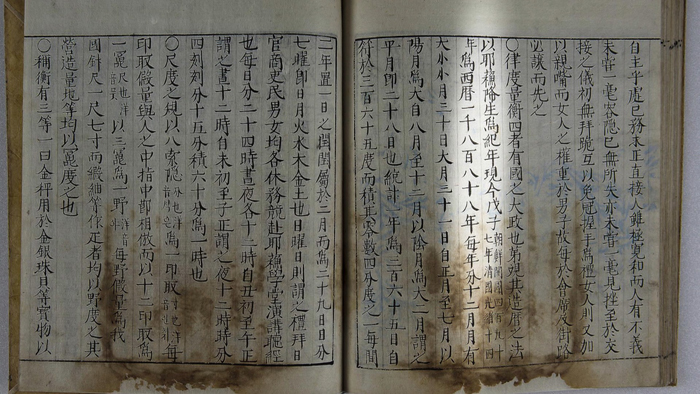 自主乎處已務本正直接人雖極寬和而人有不義
未嘗一毫容隱已無所失亦未嘗一毫見挫至於交
接之儀初無拜跪互以免冠握手爲禮女人則又加
以親嘴而女人之權重於男子故每於會席及街路
必讓而先之
〇律度量衡四者有國之大政也第觀其造曆之法
以耶蘇降生爲紀年現今戊子朝鮮開國四百九十七年清國光緒十四
年爲西曆一千八百八十八年每年分十二月月有
大小小月三十日大月三十一日自正月至七月以
陽月爲大自八月至十二月以陰月爲大二月謂之
平月卽二十八日也統計一年爲三百六十五日自
符於三百六十五度而積其零數四分度之一每間
二年置一日之閏閏屬於二月而爲二十九日日分
七曜卽日月火水木金土也日曜日則謂之禮拜日
官商吏民男女均各休務競赴耶蘇學堂演講聖經
也每日分二十四時晝夜各十二時自丑初至午正
謂之晝十二時自未初至子正謂之夜十二時時分
四刻刻分十五分積六十分爲一時也
〇尺度之規以八索隱爲一印取每
印取倣量與人之中指中節相倣而以十二印取爲
一冕以三冕爲一野每野倣量爲我
國針尺一尺七寸而織紬等作定者均以野度之其
營造量地等均以冕度之也
〇稱衡有三等一曰金秤用於金銀珠貝等實物以